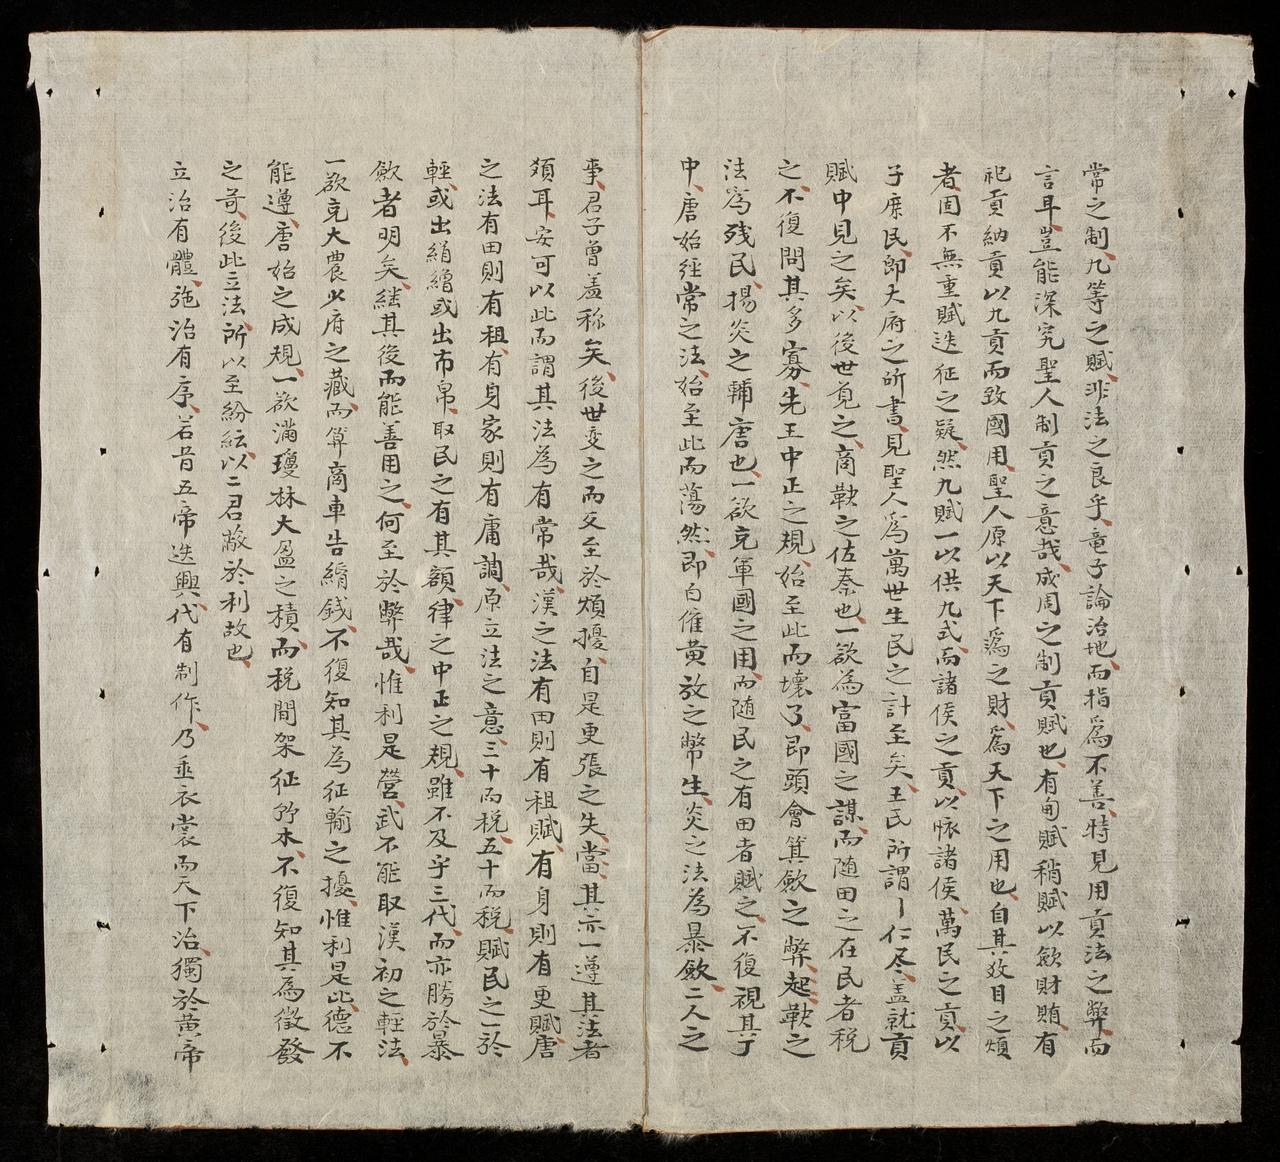 常之制、九等之賦、非法之良乎、竜子論治地、而指為不善、特見用貢法之弊、而
言耳、豈能深究聖人制貢之意哉、成周之制貢賦也、有甸賦稍賦、以歛財賄、有
祀貢納貢、以九貢而致國用、聖人原以天下爲之財、爲天下之用也、自其效目之煩
者、固不無重賦迭征之疑、然九賦一以供九式、而諸侯之貢、以待諸侯、萬民之貢、以
子庶民、即大府之所書、見聖人爲萬世生民之計至矣、王氏所謂仁尽、盖就貢
賦中見之矣、以後世覓之、商鞅之佐秦也、一欲為富國之謀、而随田之在民者税
之、不復問其多寡、先王中正之規、始至此而壊了、即頭會箕歛之弊起、鞅之
法爲残民、楊炎之輔唐也、一欲克軍國之用、而随民之有田者賦之、不復視其丁
中、唐始經常之法、始至此而蕩然、即白催黄放之幣生、炎之法為暴歛、二人之
事、君子曾羞称矣、後世变之而反至於煩擾、自是更張之失當、其亦一遵其法者
類耳、安可以此而謂其法為有常哉、漢之法有田則有租賦、有身則有更賦、唐
之法有田則有租、有身家則有庸調、原立法之意、三十而税、五十而税、賦民之一於
輕、或出絹繒、或出布帛、取民之有其額、律之中正之規、雖不及乎三代、而亦勝於暴
歛者明矣、継其後而能善用之、何至於弊哉、惟利是營、武不能取漢初之輕法、
一欲克大農少府之藏、而算商車告緡錢、不復知其為征輸之擾、惟利是比、德不
能遵唐始之成規、一欲滿瓊林大盈之積、而税間架征竹木、不復知其為徵發
之苛、後此立法、所以至紛紜、以二君敝於利故也、
立治有體、施治有序、若昔五帝迭興、代有制作、乃垂衣裳而天下治、獨於黄帝